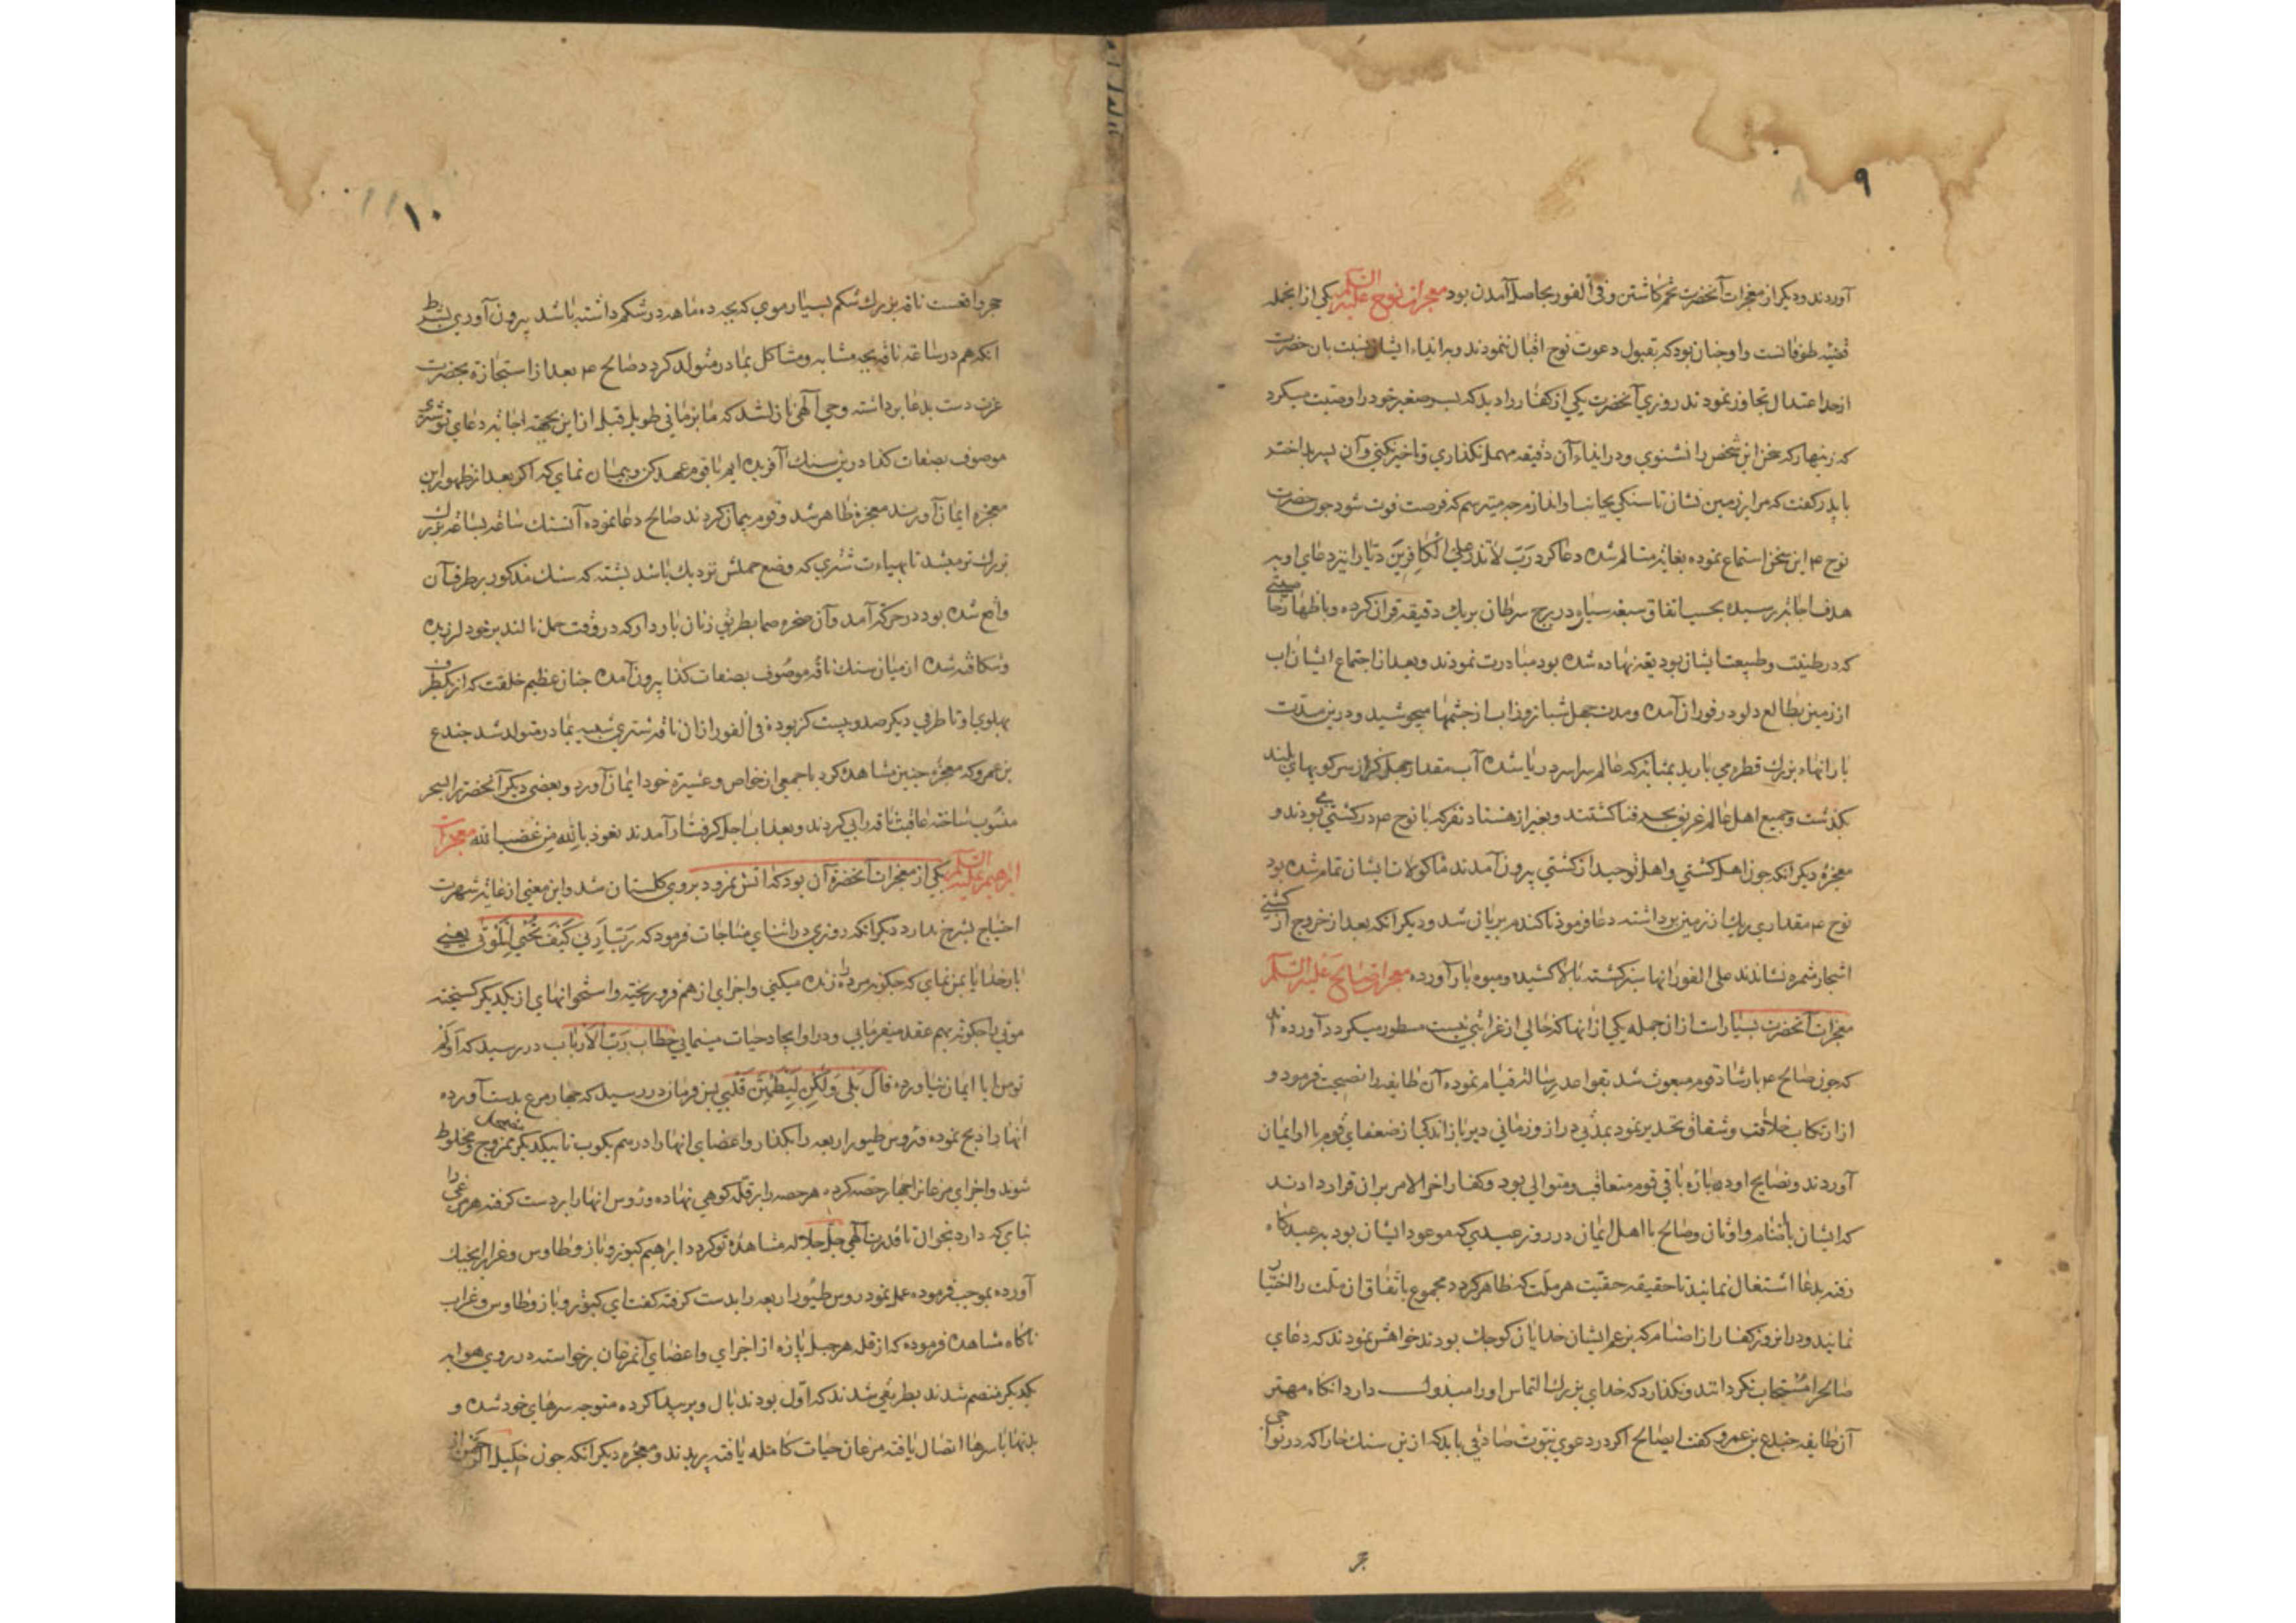 ۹
آوردند و دیگر از معجزات آنحضرت تخم کاشتن و فی الفور بحاصل آمدن بود معجزات نوح علیه السلم یکی از انجمله
قضیه طوفانست و او چنان بود که بقبول دعوت نوح اقبال ننمودند و به ایذاء ایشان نسبت بان حضرت
از حد اعتدال تجاوز نمودند روزی آنحضرت یکی از کفار را دید که پسر صغیر خود را وصیت میکرد
که زینهار که سخن این شخص را نشنوی و در ایذاء آن دقیقه مهمل نکذاری و تاخیر نکنی و آن پسر بد اختر
با پدر کفت که مرا بر زمین نشان تا سنکی بجانب او اندازم چه میترسم که فرصت فوت شود چون حضرت
نوح ۴ این سخن استماع نموده بغایة متالم شده دعا کرد رَبّ لا تذر علی الکافِرینَ دیّارا تیر دعای او به
هدف اجابة رسیده بحسب اتفاق سبعه سیاره در برج سرطان بر یک دقیقه قران کرده و باظهار خاصیتی
که در طینت و طبیعت ایشان بودیعة نهاده شده بود مبادرت نمودند و بعد از اجتماع ایشان اب
از زمین بطالع دلو در فوران آمده و مدت چهل شبانروز اب از چشمها میجوشید و درین مدّت
بارانهاء بزرك قطره می بارید بمثابة که عالم سراسر دریا شده آب مقدار چهل کز از سر کوههای بلند
بکذشت و جمیع اهل عالم غریق بحر فنا کشتند و بغیر از هشتاد نفر که با نوح ۴ در کشتی می بودند و
معجزه دیکر انکه چون اهل کشتی و اهل توحید از کشتی بیرون آمدند ماکولات ایشان تمام شده بود
نوح ۴ مقداری ریك از زمین برداشته دعا فرمود تا کندم بریان شد و دیکر انکه بعد از خروج از کشتی
اشجار مثمره نشاندند علی الفور انها سبز کشته بالا کشیده و میوه بار آورده معجزات صالح عَلَیه السّلم
معجزات آنحضرت بسیار است از ان جمله یکی از انها که خالی از غرابتی نیست مسطور میکردد آورده اند
که چون صالح ۴ بارشاد قوم مبعوث شد بقواعد رسالة قیام نموده آن طایفه را نصیحت فرمود و
از ارتکاب خلافت و شقاق تحذیر نمود بمدّتی دراز و زمانی دیرباز اندکی از ضعفای قوم با او ایمان
آوردند و نصایح او در باره باقی قوم متعاقب و متوالی بود و کفار اخر الامر بران قرار دادند
که ایشان با اصنام و اوثان و صالح با اهل ایمان در روز عیدی که موعود ایشان بود به عیدکاه
رفته بدعا اشتغال نمایند تا حقیقه حقیّت هر ملّت که ظاهر کردد مجموع باتفاق ان ملّت را اختیار
نمایند و در ان روز کفار از اصنام که بزعم ایشان خدایان کوچك بودند خواهش نمودند که دعای
صالح را مستجاب نکردانند و نکذارد که خدای بزرك التماس او را مبذول دارد انکاه مهتر
آن طایفه جندع بن عمرو کفت ای صالح اکر در دعوی نبوّت صادقی باید که ازین سنك خارا که در نواحی
۱۰
حجر واقعست ناقه بزرك شکم بسیار موی که بچه ده ماهه در شکم داشته باشد بیرون آوری بشرط
انکه هم در ساعة ناقه بچه مشابه و مشاکل بمادر متولد کردد صالح ۴ بعد از استجازة بحضرت
عزت دست بدعا برداشته وحی آلهی نازل شد که ما بزمانی طویل قبل از این بجهة اجابة دعای تو شتری
موصوف بصفات کذا درین سنك آفریده ایم با قوم عهد کن و پیمان نمای که اکر بعد از ظهور این
معجزه ایمان آورند معجزه ظاهر شد و قوم پیمان کردند صالح دعا نموده آنسنك ساعة بساعة بزرك
بزرك تر میشد تا بهیاءت شتری که وضع حملش نزدیك باشد پشته که سنك مذکور بر طرف آن
واقع شده بود در حرکة آمد و آن صخره صما بطریق زنان باردار که در وقت حمل نالند بر خود لرزیده
و شکافته شده از میان سنك ناقه موصوف بصفات کذا بیرون آمده چنان عظیم خلقت که از یکطرف
پهلوی او تا طرفی دیکر صد و بیست کز بوده فی الفور ازان ناقه شتری شبیه بمادر متولد شد جندع
بن عمرو که معجزه چنین مشاهده کرد با جمعی از خواص و عشیرة خود ایمان آورد و بعضی دیکر آنحضرت را بسحر
منسوب ساخته عاقبت ناقه را پی کردند و بعذاب اجل کرفتار آمدند نعوذ بالله مِن غضب الله معجزات
ابرهیم علیه السّلم یکی از معجزات آنحضرة آن بود که اتش نمرود بر وی کلستان شد و این معنی از غایة شهرت
احتیاج بشرح ندارد دیکر انکه روزی در اثنای مناجات فرمود که رَبّ اَرِنی کَیْفَ تُحْیِی المَوْتی یعنی
بار خدایا بمن نمای که چکونه مرده را زنده میکنی و اجزای از هم فرو ریخته و استخوانهای از یکدیکر کسیخته
موتی را چکونه بهم عقد میفرمایی و در او ایجاد حیات مینمایی خطاب رَبّ الاَرباب در رسید که اَوَلَم
تومن ایا ایمان نیاورده قالَ بَلی وَلکِن لِیَطمَئِنَّ قَلبی پس فرمان در رسید که چهار مرغ بدست آورده
انها را ذبح نموده و رؤس طیور اربعه را بکذار و اعضای انها را در هم بکوب تا بیکدیکر ممزوج و مخلوط
شوند و اجزای مرغان را چهار حصّه کرده هر حصه را بر قلّه کوهی نهاده و رؤس انها را بر دست کرفته هر مرغی را
بنامی که دارد بخوان تا قدرت آلهی جَلّ جلاله مشاهده تو کردد ابراهیم کبوتر و باز و طاوس و غراب را بچنك
آورده بموجب فرموده عمل نمود رؤس طیور اربعه را بدست کرفته کفت ای کبوتر و باز و طاوس و غراب
ناکاه مشاهده فرموده که از قله هر جبل پاره از اجزای و اعضای آنمرغان برخواسته در روی هوا به
یکدیکر منضم شدند بطریقی شدند که اوّل بودند بال و پر پیدا کرده متوجه سرهای خود شده و
بدنها با سرها اتصال یافته مرغان حیات کامله یافته پریدند و معجزه دیکر انکه چون خلیل الرحمن از